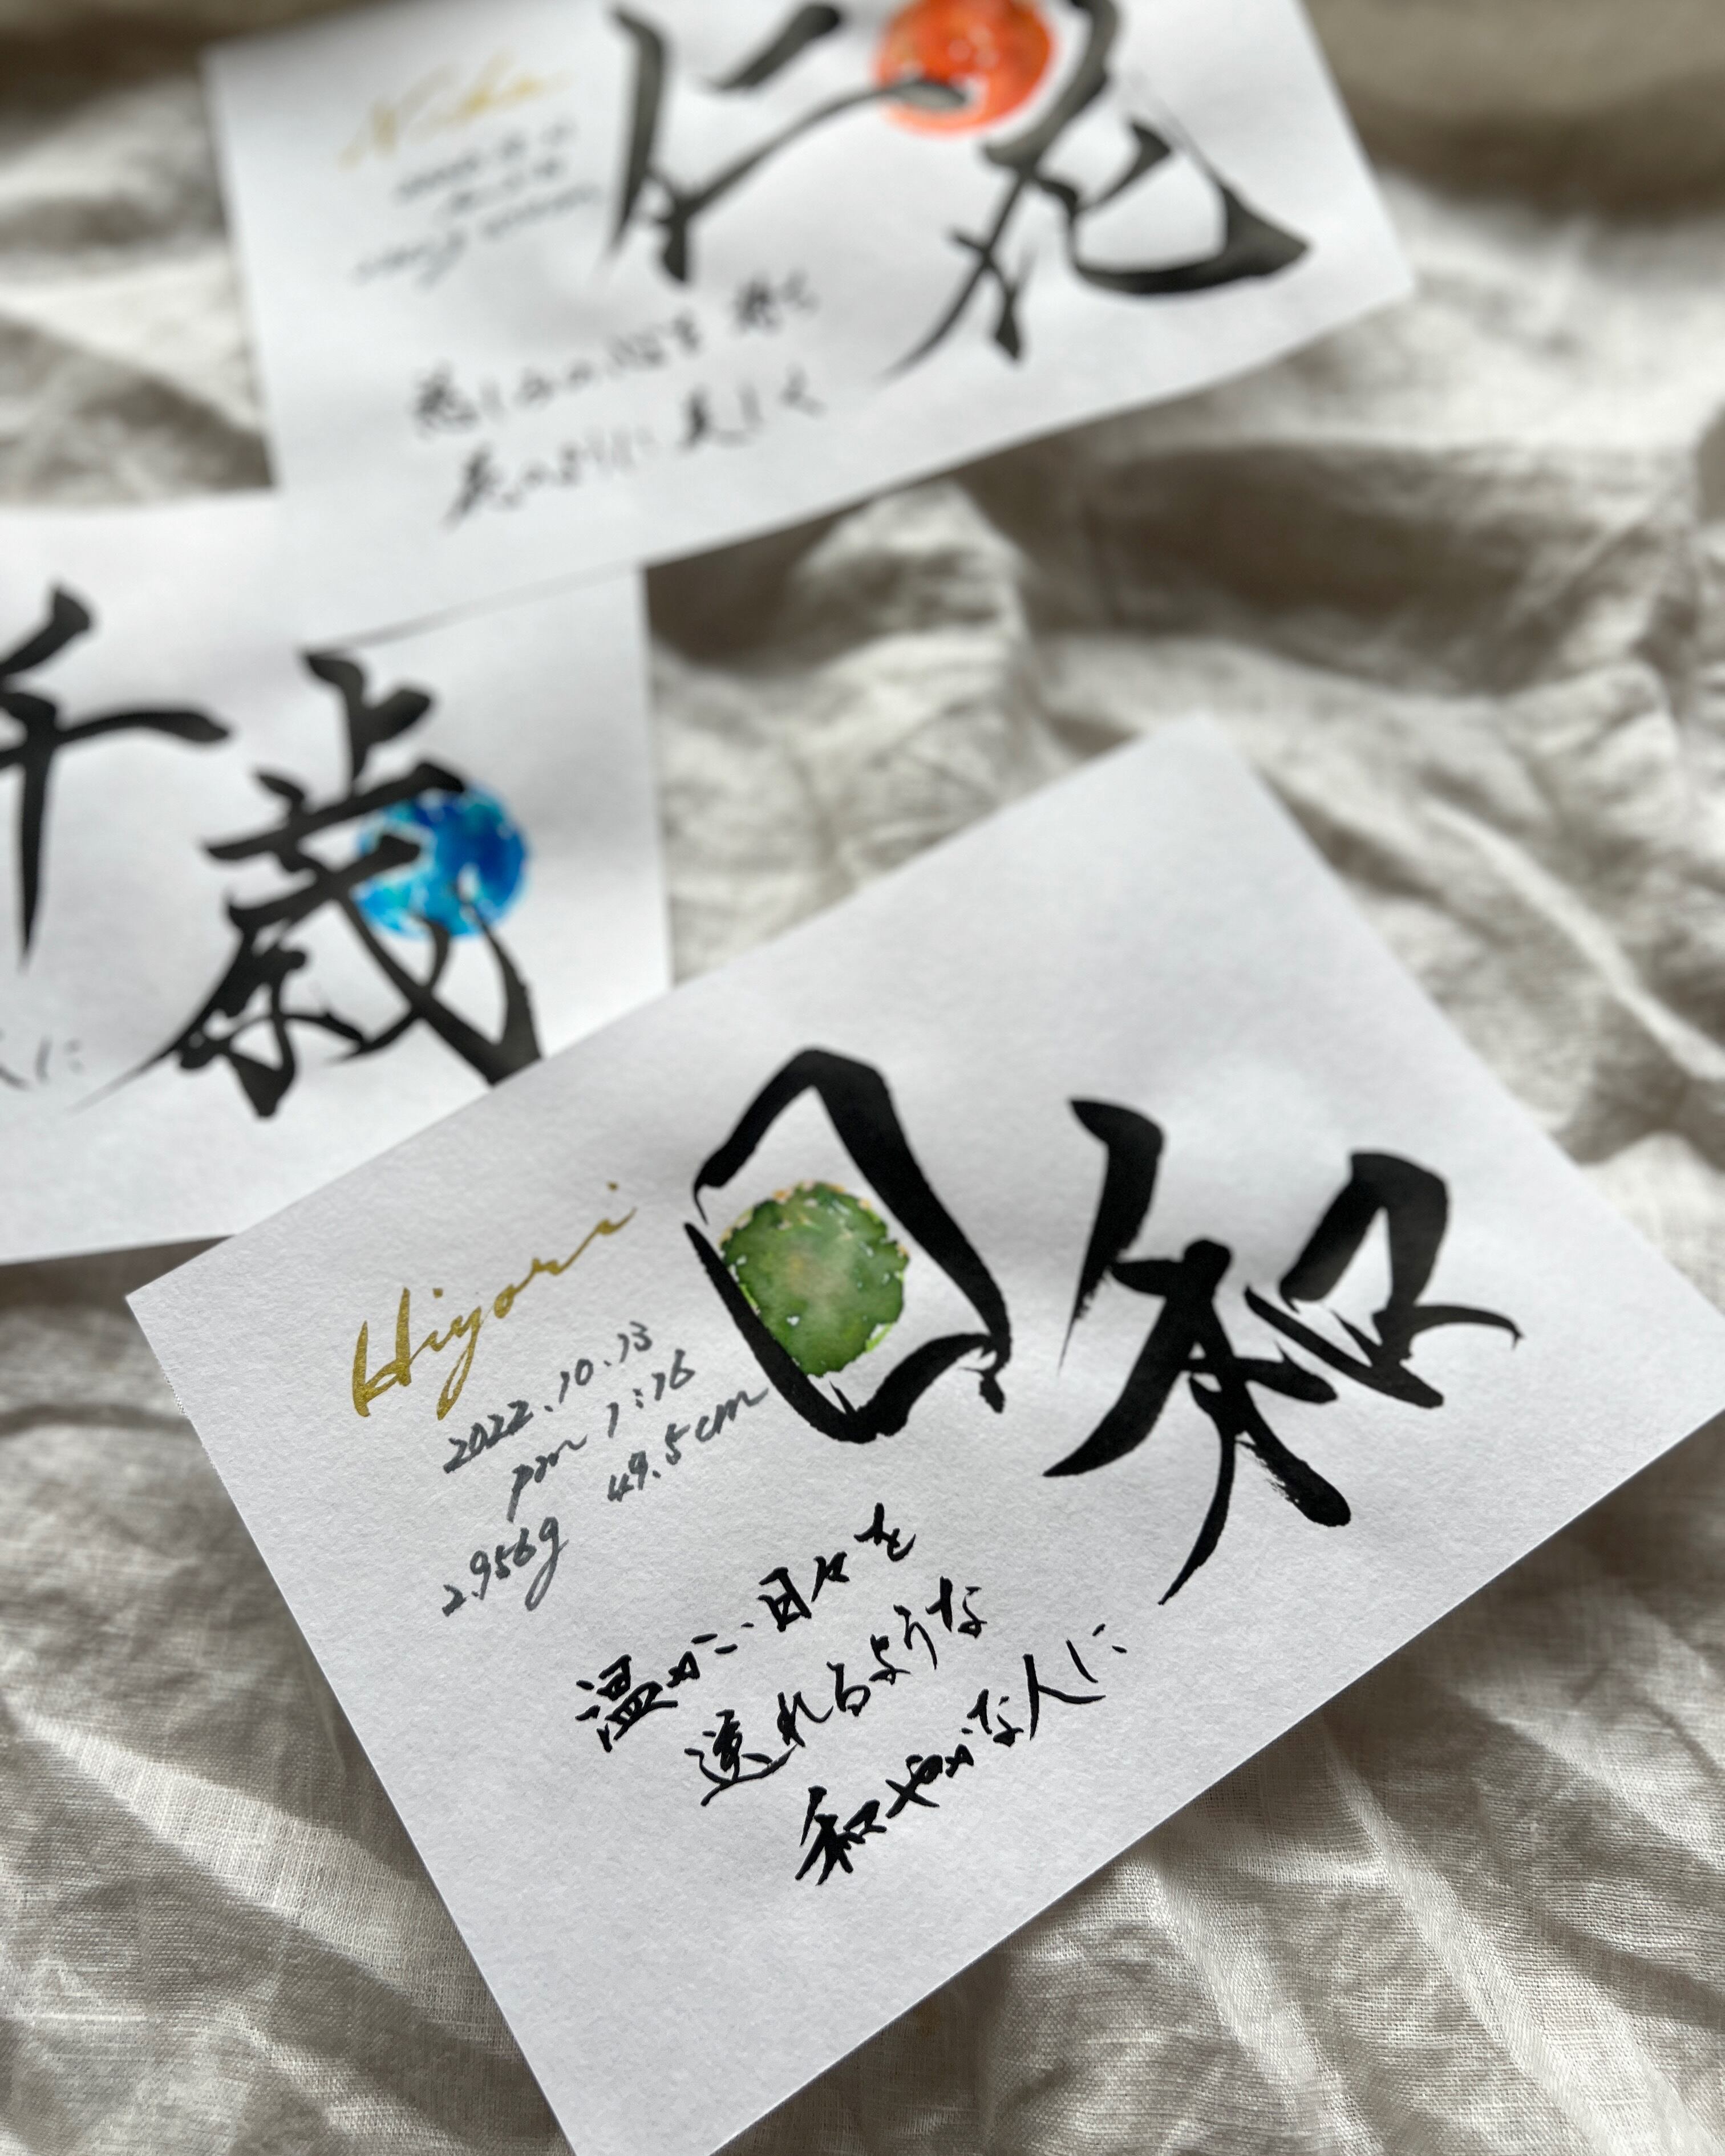 仁花
慈しみの心を
花のように美しく
千歳
に
日和
Hiyori
2022.10.13
pm 1:16
2.956g 49.5cm
温かい日々を
送れるような
和やかな人に